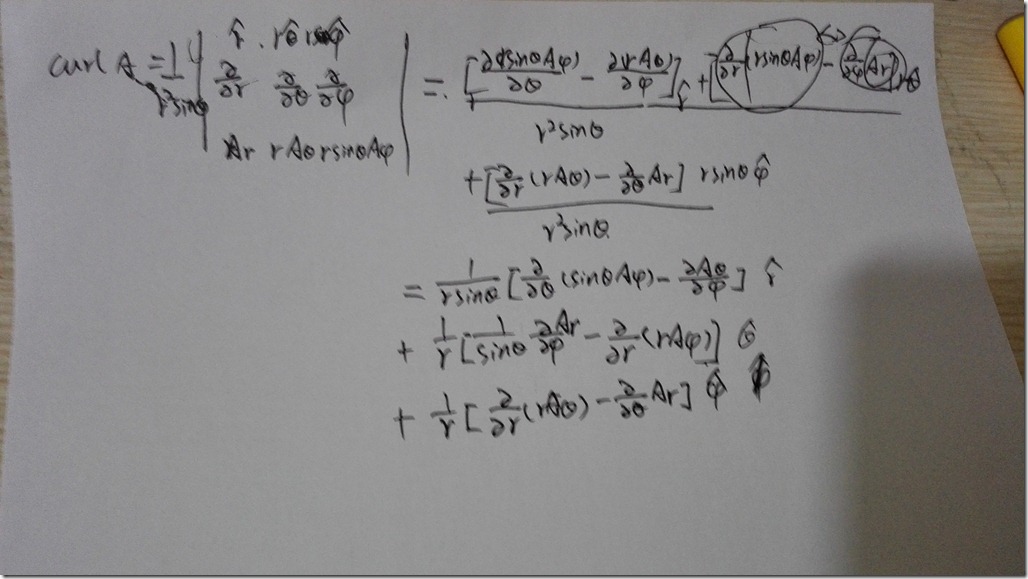 curl A = 1/(r²sinθ) | r̂ rθ̂ rsinθφ̂ | = [∂(rsinθAφ)/∂θ − ∂(rAθ)/∂φ] r̂ + [∂/∂r (rsinθAφ) − ∂/∂φ (Ar)] rθ̂
∂/∂r ∂/∂θ ∂/∂φ
Ar rAθ rsinθAφ
r²sinθ
+ [∂/∂r (rAθ) − ∂/∂θ Ar] rsinθ φ̂
r²sinθ
= 1/(rsinθ) [∂/∂θ (sinθAφ) − ∂Aθ/∂φ] r̂
+ 1/r [1/sinθ ∂Ar/∂φ − ∂/∂r (rAφ)] θ̂
+ 1/r [∂/∂r (rAθ) − ∂/∂θ Ar] φ̂